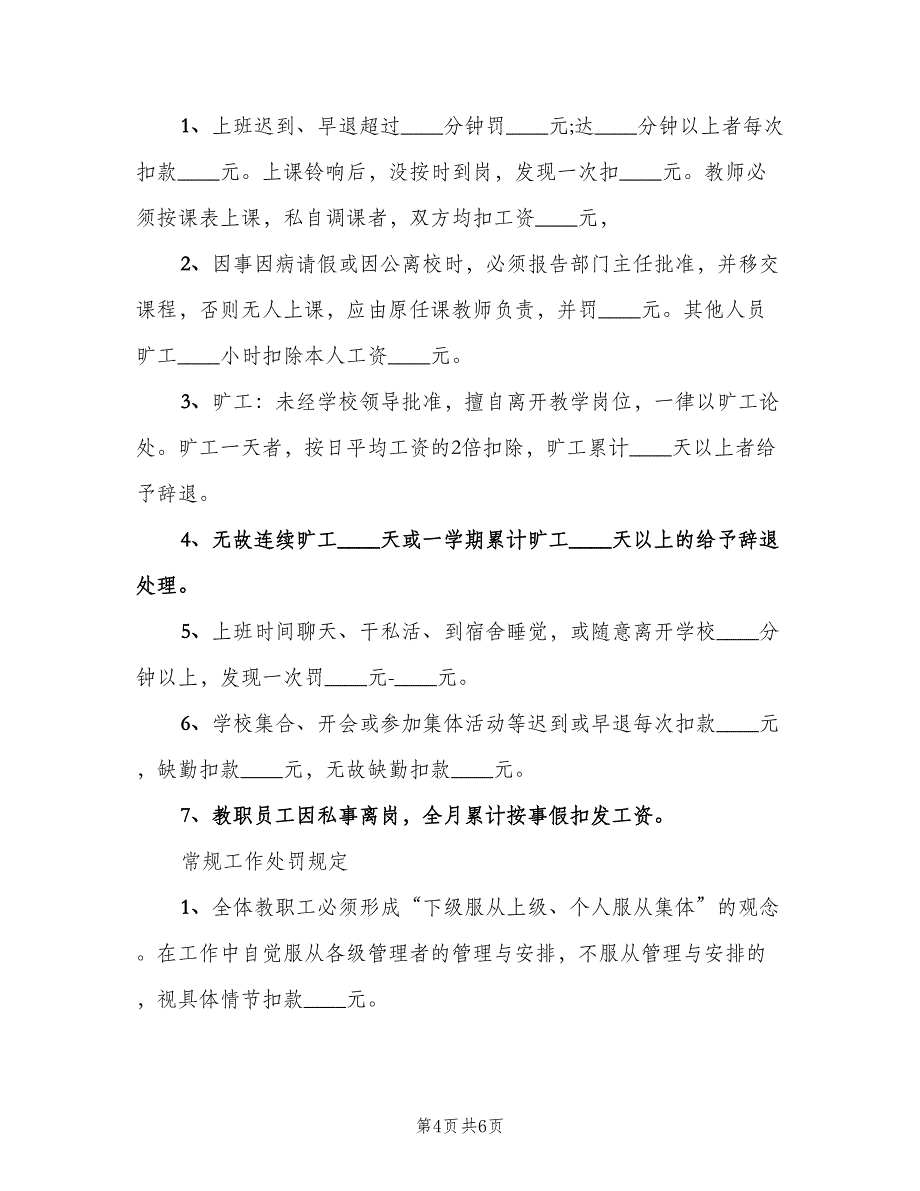 1、上班迟到、早退超过____分钟罚____元;达____分钟以上者每次
扣款____元。上课铃响后，没按时到岗，发现一次扣____元。教师必
须按课表上课，私自调课者，双方均扣工资____元，
2、因事因病请假或因公离校时，必须报告部门主任批准，并移交
课程，否则无人上课，应由原任课教师负责，并罚____元。其他人员
旷工____小时扣除本人工资____元。
3、旷工：未经学校领导批准，擅自离开教学岗位，一律以旷工论
处。旷工一天者，按日平均工资的2倍扣除，旷工累计____天以上者给
予辞退。
4、无故连续旷工____天或一学期累计旷工____天以上的给予辞退
处理。
5、上班时间聊天、干私活、到宿舍睡觉，或随意离开学校____分
钟以上，发现一次罚____元-____元。
6、学校集合、开会或参加集体活动等迟到或早退每次扣款____元
，缺勤扣款____元，无故缺勤扣款____元。
7、教职员工因私事离岗，全月累计按事假扣发工资。
常规工作处罚规定
1、全体教职工必须形成“下级服从上级、个人服从集体”的观念
。在工作中自觉服从各级管理者的管理与安排，不服从管理与安排的
，视具体情节扣款____元。
第4页 共6页